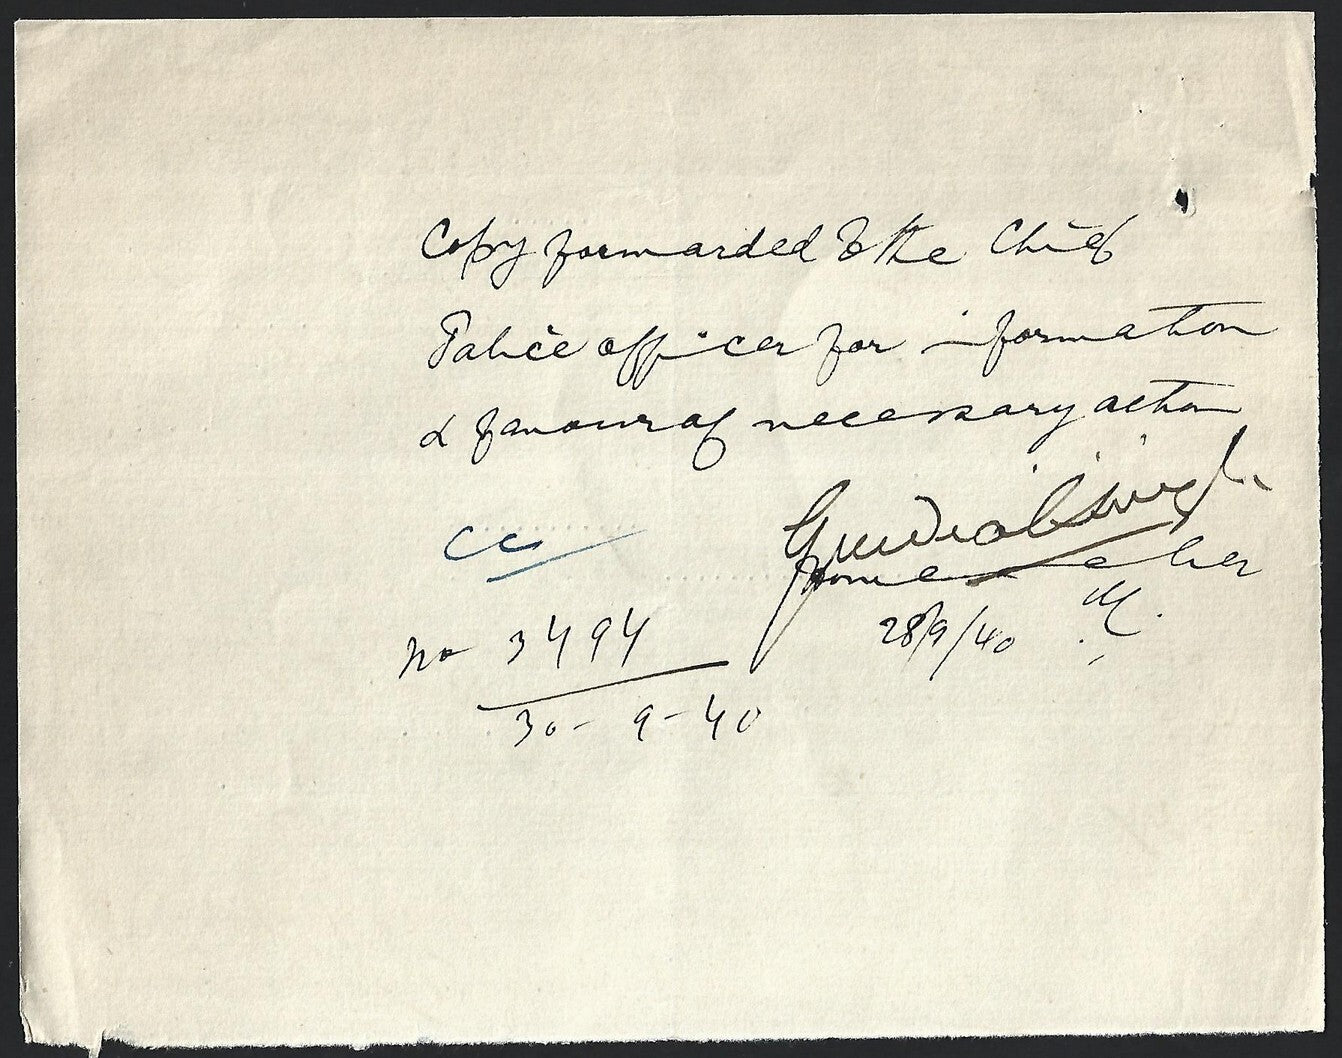 Copy forwarded to the Chief
Police officer for information
& favour of necessary action
Gurdial Singh
CC
28/9/40
No 3494
30-9-40